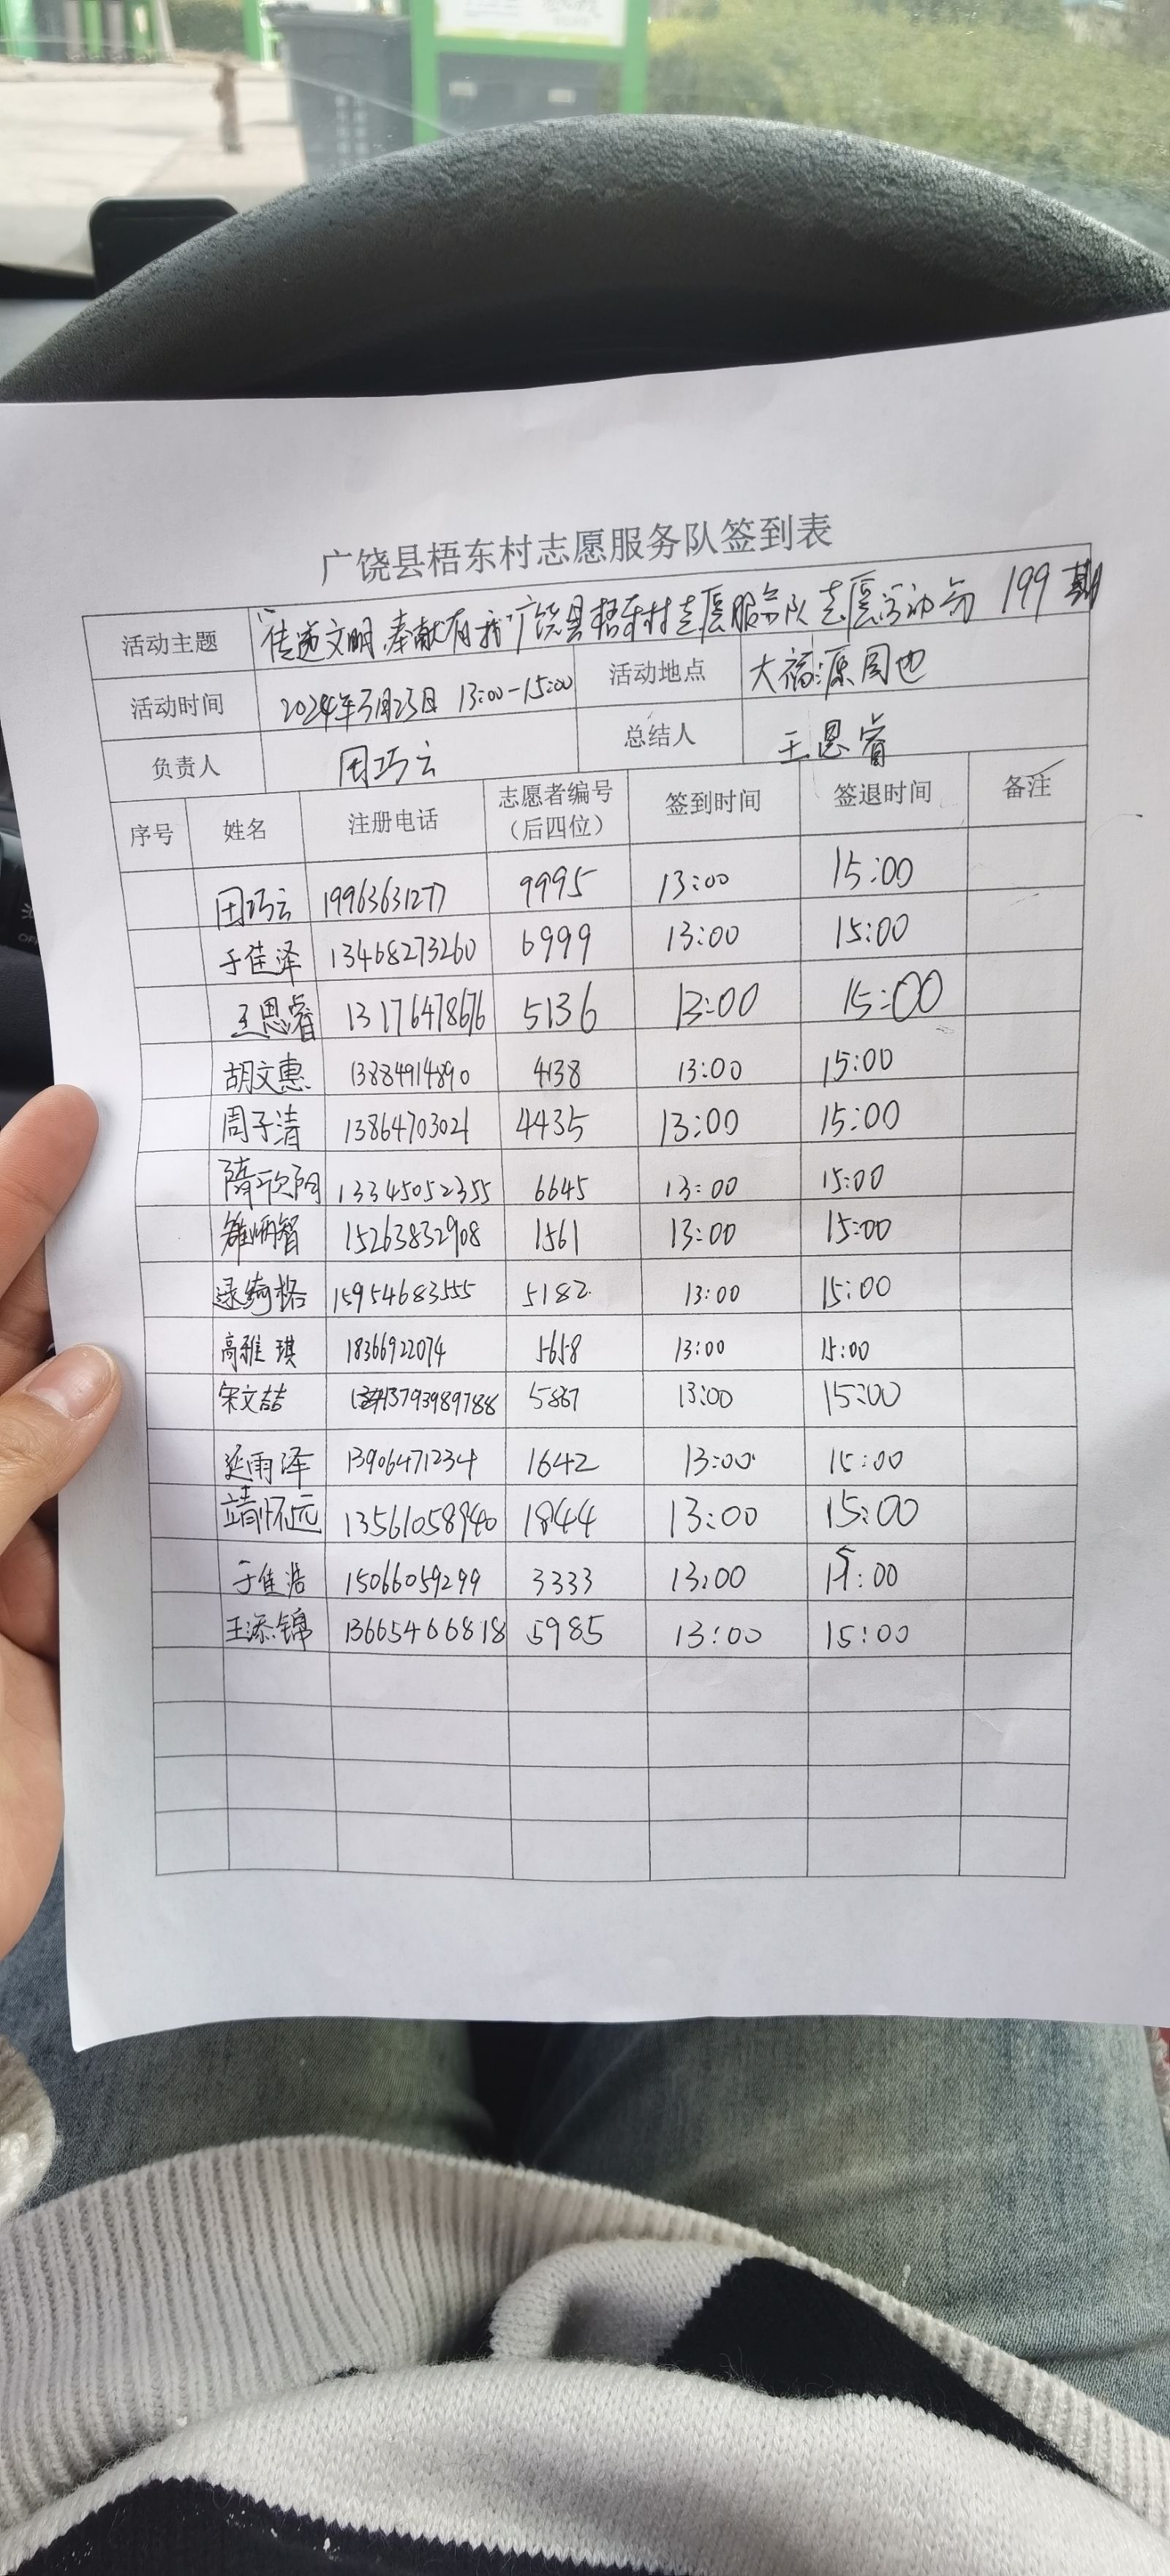 广饶县梧东村志愿服务队签到表
活动主题 "传递文明,奉献有我"广饶县梧东村志愿服务队志愿活动第199期
活动时间 2024年3月23日 13:00-15:00 活动地点 大福源周边
负责人 田巧云 总结人 王恩睿
序号 姓名 注册电话 志愿者编号(后四位) 签到时间 签退时间 备注
田巧云 19963631277 9995 13:00 15:00
于佳泽 13468273260 6999 13:00 15:00
王恩睿 13176478676 5136 13:00 15:00
胡文惠 13884914890 4138 13:00 15:00
周子清 13864703021 4435 13:00 15:00
隋欣阳 13345052355 6645 13:00 15:00
15263832908 1561 13:00 15:00
15954683555 5182 13:00 15:00
高雅琪 18366922074 5658 13:00 15:00
宋文喆 13793989788 5887 13:00 15:00
延雨泽 13906471234 1642 13:00 15:00
靖怀远 13561058940 1844 13:00 15:00
于佳浩 15066059299 3333 13:00 15:00
王添锦 13665466818 5985 13:00 15:00